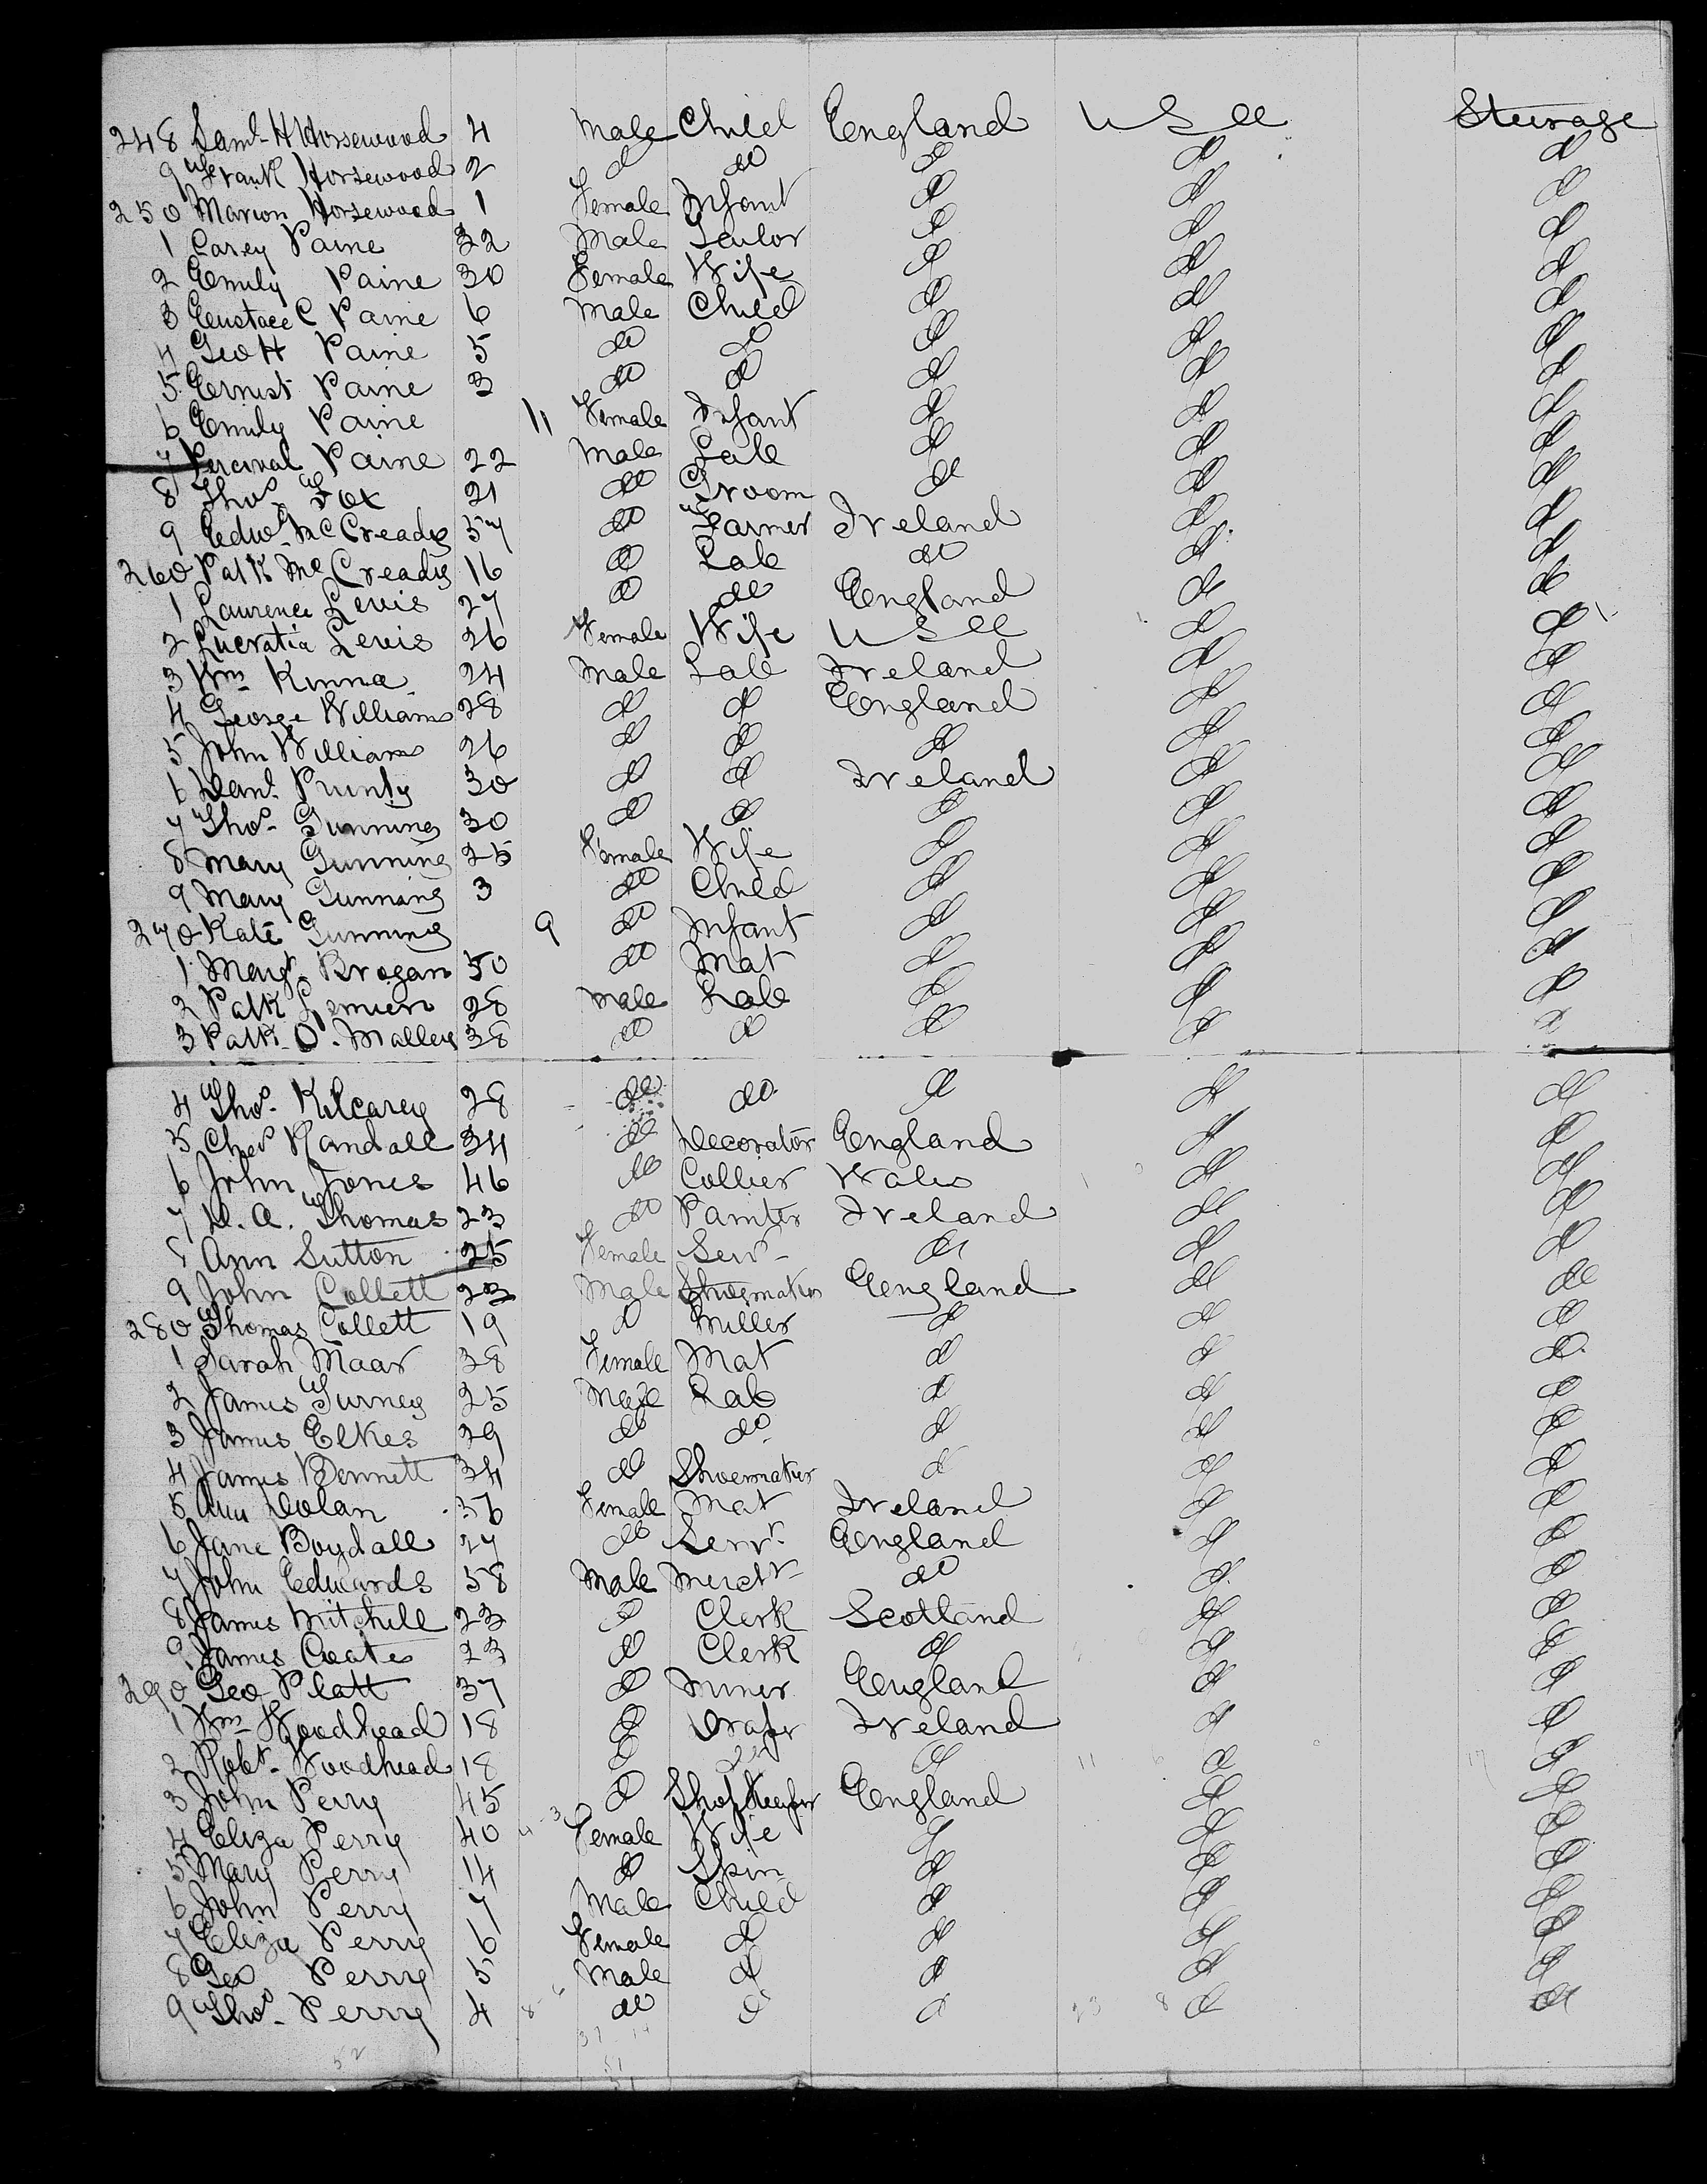 248 Saml H Horsewood 4 Male Child England U S A Steerage
9 Frank Horsewood 2 do do do do do
250 Marion Horsewood 1 Female Infant do do do
1 Carey Paine 32 Male Tailor do do do
2 Emily Paine 30 Female Wife do do do
3 Eustace C Paine 6 Male Child do do do
4 Geo H Paine 5 do do do do do
5 Ernest Paine 3 do do do do do
6 Emily Paine 11 Female Infant do do do
7 Percival Paine 22 Male Lab do do do
8 Thos Fox 21 do Groom do do do
9 Edwd McCready 57 do Farmer Ireland do do
260 Patk McCready 16 do Lab do do do
1 Laurence Lewis 27 do do England do do
2 Lucratia Lewis 26 Female Wife U S A do do
3 Wm Kinna 24 Male Lab Ireland do do
4 George Williams 28 do do England do do
5 John Williams 26 do do do do do
6 Danl Prunty 30 do do Ireland do do
7 Thos Gunning 30 do do do do do
8 Mary Gunning 25 Female Wife do do do
9 Mary Gunning 3 do Child do do do
270 Kate Gunning 9 do Infant do do do
1 Margt Brogan 50 do Mat do do do
2 Patk 28 Male Lab do do do
3 Patk O'Malley 38 do do do do do
4 Thos Kilcarey 28 do do do do do
5 Chas Randall 34 do Decorator England do do
6 John Jones 46 do Collier Wales do do
7 D. A. Thomas 23 do Painter Ireland do do
8 Ann Sutton 25 Female Servt do do do
9 John Collett 23 Male Shoemaker England do do
280 Thomas Collett 19 do Miller do do do
1 Sarah Maar 38 Female Mat do do do
2 James Gurney 25 Male Lab do do do
3 James Elkes 29 do do do do do
4 James Bennett 34 do Shoemaker do do do
5 Ann Dolan 36 Female Mat Ireland do do
6 Jane Boydall 27 do Servt England do do
7 John Edwards 58 Male Mercht do do do
8 James Mitchell 23 do Clerk Scotland do do
9 James Coates 23 do Clerk do do do
290 Geo Platt 37 do Miner England do do
1 Wm Woodhead 18 do Draper Ireland do do
2 Robt Woodhead 18 do do do do do
3 John Perry 45 do Shop Keeper England do do
4 Eliza Perry 40 Female Wife do do do
5 Mary Perry 14 do Spin do do do
6 John Perry 7 Male Child do do do
7 Eliza Perry 6 Female do do do do
8 Geo Perry 5 Male do do do do
9 Thos Perry 4 do do do do do